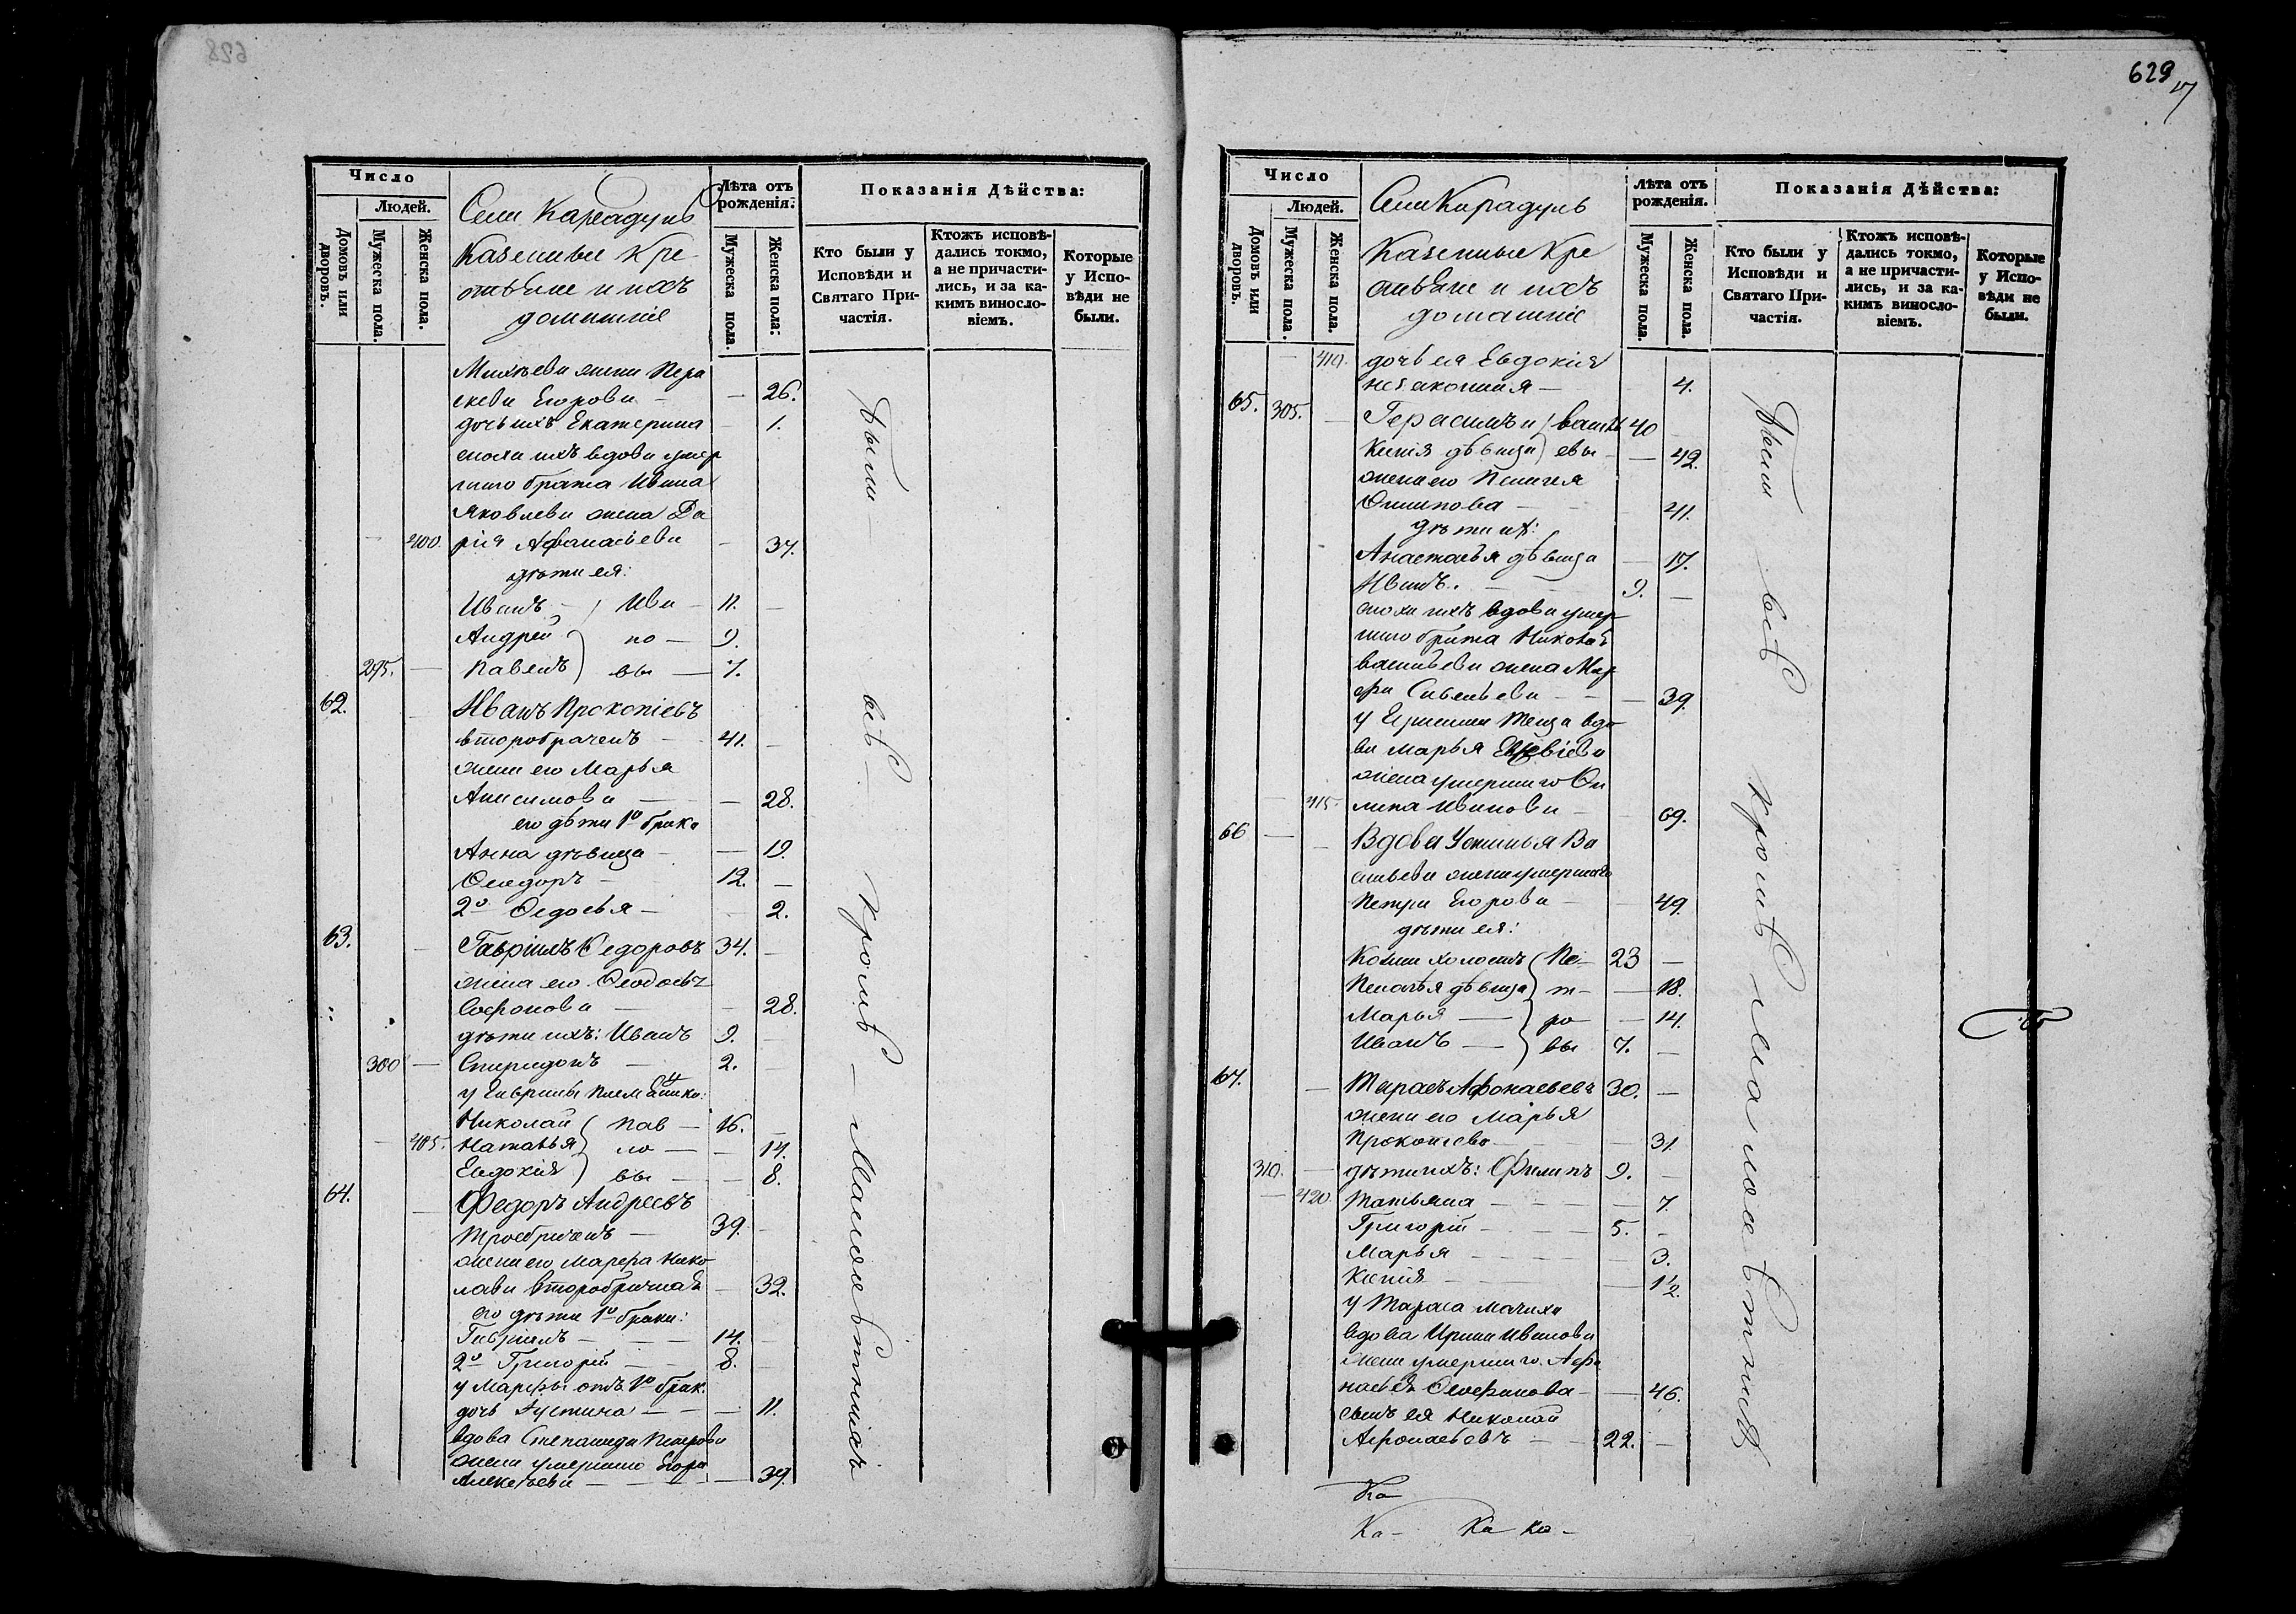 628
Число
Людей.
Домовъ или дворовъ.
Мужеска пола.
Женска пола.
Села Карагадунъ
Казенные Кре
стьяне и ихъ
домашніе
Лѣта отъ рожденія.
Мужеска пола.
Женска пола.
Показанія Дѣйства:
Кто были у Исповѣди и Святаго При-
частія.
Ктожъ исповѣ-
дались токмо,
а не причасти-
лись, и за ка-
кимъ винсло-
віемъ.
Которые
у Испо-
вѣди не
были.
жена Пера
скева Егорова — — 26.
дочь ихъ Екатерина — 1.
сноха ихъ вдова умер
шаго брата Ивана
Яковлева жена Да
400. рія Афанасіева — 37.
дѣти ея:
Иванъ — Ива — 11. —
Андрей но — 9.
295. — Павелъ вы — 7.
62. Иванъ Прокопіевъ
второбраченъ — 41. —
жена его Марья
Анисимова — — 28.
его дѣти 1го брака
Анна дѣвица — — 19.
Ѳеодоръ — 12. —
2го Ѳедосья — — 2.
63. — Гавріилъ Ѳедоровъ 34. —
жена его Ѳеодосья
Софонова — — 28.
дѣти ихъ: Иванъ 9. —
300 — Спиридонъ — 2. —
у Гавріилы племянники:
Николай Пав — 16. —
405. Наталья ло — — 14.
Евдокія вы — — 8.
64. — Ѳедоръ Андреевъ
троебраченъ — 39. —
жена его Марфа Нико
лаева второбрачная — 32.
его дѣти 1го брака:
Гавріилъ — 14. —
2го Григорій — 8. —
у Марфы отъ 1го брак.
дочь Устина — — 11.
вдова Степанида Петрова
жена умершаго Егора
Алексѣева — — 39.
были всѣ кромѣ — малолѣтнихъ
629
Число
Людей.
Домовъ или дворовъ.
Мужеска пола.
Женска пола.
Села Карагадунъ
Казенные Кре
стьяне и ихъ
домашніе
Лѣта отъ рожденія.
Мужеска пола.
Женска пола.
Показанія Дѣйства:
Кто были у
Исповѣди и
Святаго При-
частія.
Ктожъ исповѣ-
дались токмо,
а не причасти-
лись, и за ка-
кимъ винсло-
віемъ.
Которые
у Испо-
вѣди не
были.
410. дочь ея Евдокія
незаконная — 4.
65. 305. — Герасимъ и Василь 40
Ксенія дѣвица евы — — 42.
жена его Пелагея
Осипова — 41.
дѣти их:
Анастасья дѣвица — 17.
Иванъ. — 9. —
сноха ихъ вдова умер
шаго брата Николая
Васильева жена Мар
фа Савельева — — 39.
у Герасима теща вдо
ва Марья
жена умершаго Оси
415. липа Иванова — 69.
66 — — Вдова Устинья Ва
сильева жена умершаго
Петра Егорова — — 49.
дѣти ея:
Козма холостъ Пе — 23 —
Пелагья дѣвица т — — 18.
Марья — ро — — 14.
Иванъ — вы 7. —
67. — Тарасъ Афонасьевъ 30. —
жена его Марья
Прокопіева — — 31.
310. — дѣти ихъ: Филипъ 9. —
— 420. Татьяна — — 7.
Григорій — 5. —
Марья — 3.
Ксенія — 1/2.
у Тараса мачиха
вдова Ирина Иванова
жена умершаго Афо
насья Стефанова — — 46.
сынъ ея Николай
Афонасьевъ — 22. —
Были всѣ кромѣ малолѣтнихъ
Ка
Ка — Ка ка —